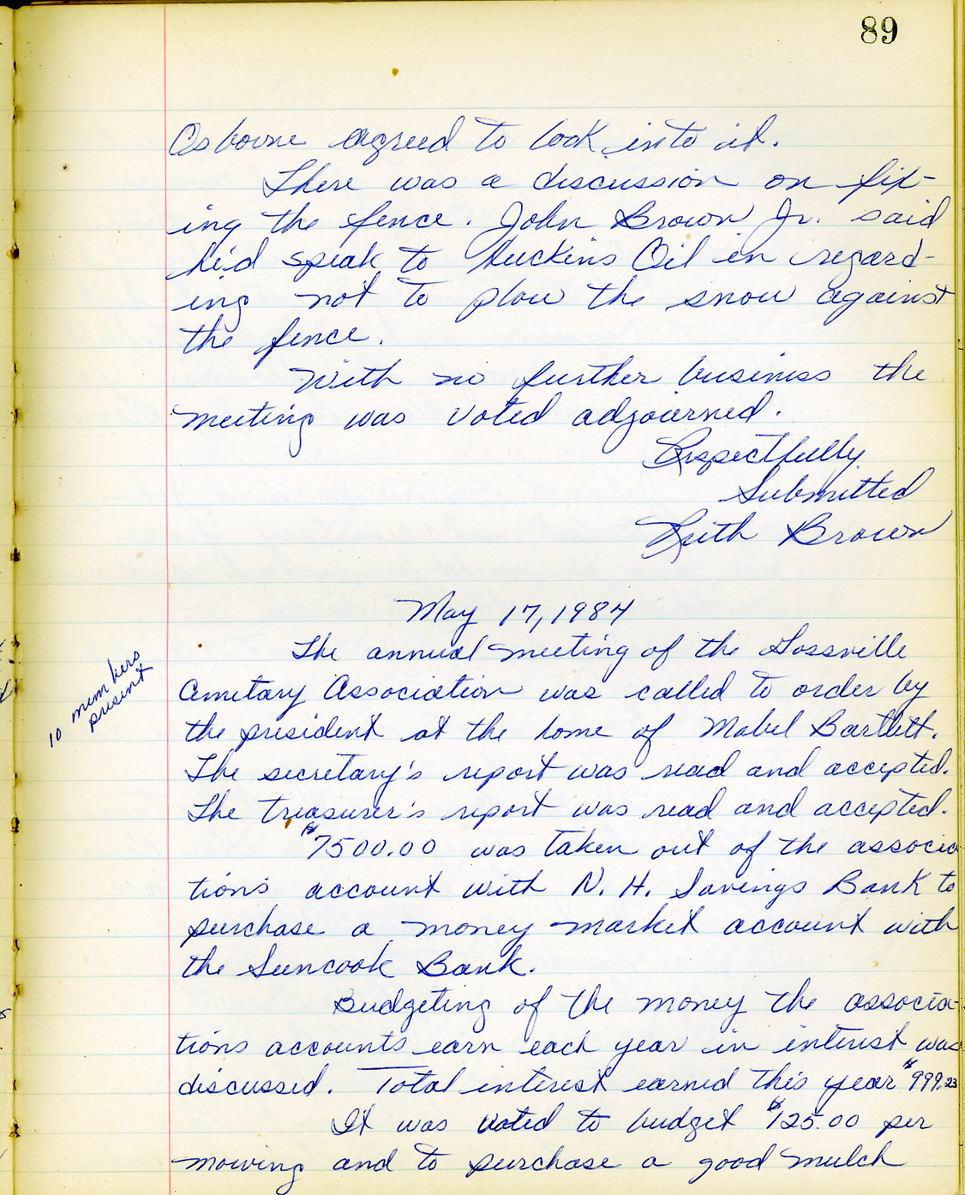 89
Osborne agreed to look into it.
There was a discussion on fix-
ing the fence. John Brown Jr. said
he'd speak to Huckins Oil in regard-
ing not to plow the snow against
the fence.
With no further business the
meeting was voted adjourned.
Respectfully
Submitted
Ruth Brown
May 17, 1984
The annual meeting of the Gossville
10 members
present
Cemetary Association was called to order by
the president at the home of Mabel Bartlett.
The secretary's report was read and accepted.
The treasurer's report was read and accepted.
$7500.00 was taken out of the associa
tions account with N. H. Savings Bank to
purchase a money market account with
the Suncook Bank.
Budgeting of the money the associa-
tions accounts earn each year in interest was
discussed. Total interest earned this year $999.23
It was voted to budget $125.00 per
mowing and to purchase a good mulch